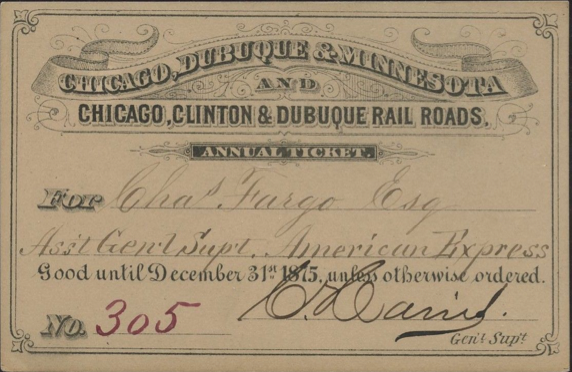 CHICAGO, DUBUQUE & MINNESOTA
AND
CHICAGO, CLINTON & DUBUQUE RAIL ROADS.
ANNUAL TICKET.
FOR Chas. Fargo Esq
Ass't Gen'l Supt. American Express
Good until December 31st 1875, unless otherwise ordered.
No. 305
Gen'l Sup't